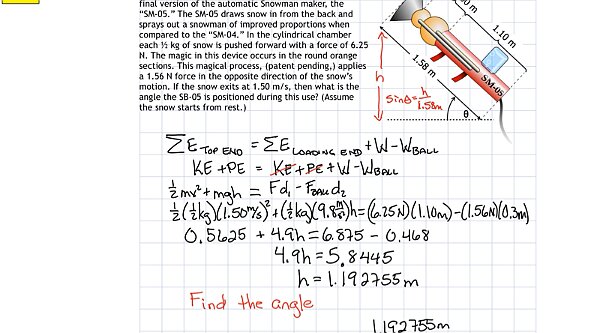 final version of the automatic Snowman maker, the
"SM-05." The SM-05 draws snow in from the back and
sprays out a snowman of improved proportions when
compared to the "SM-04." In the cylindrical chamber
each ½ kg of snow is pushed forward with a force of 6.25
N. The magic in this device occurs in the round orange
sections. This magical process, (patent pending,) applies
a 1.56 N force in the opposite direction of the snow's
motion. If the snow exits at 1.50 m/s, then what is the
angle the SB-05 is positioned during this use? (Assume
the snow starts from rest.)
0 m
1.10 m
1.58 m
SM-05
h
sinθ = h/1.58m
θ
ΣE TOP END = ΣE LOADING END + W - WBALL
KE + PE = KE + PE + W - WBALL
½mv² + mgh = Fd₁ - FBALL d₂
½(½kg)(1.50m/s)² + (½kg)(9.8m/s²)h = (6.25N)(1.10m) - (1.56N)(0.3m)
0.5625 + 4.9h = 6.875 - 0.468
4.9h = 5.8445
h = 1.192755m
Find the angle
1.192755m